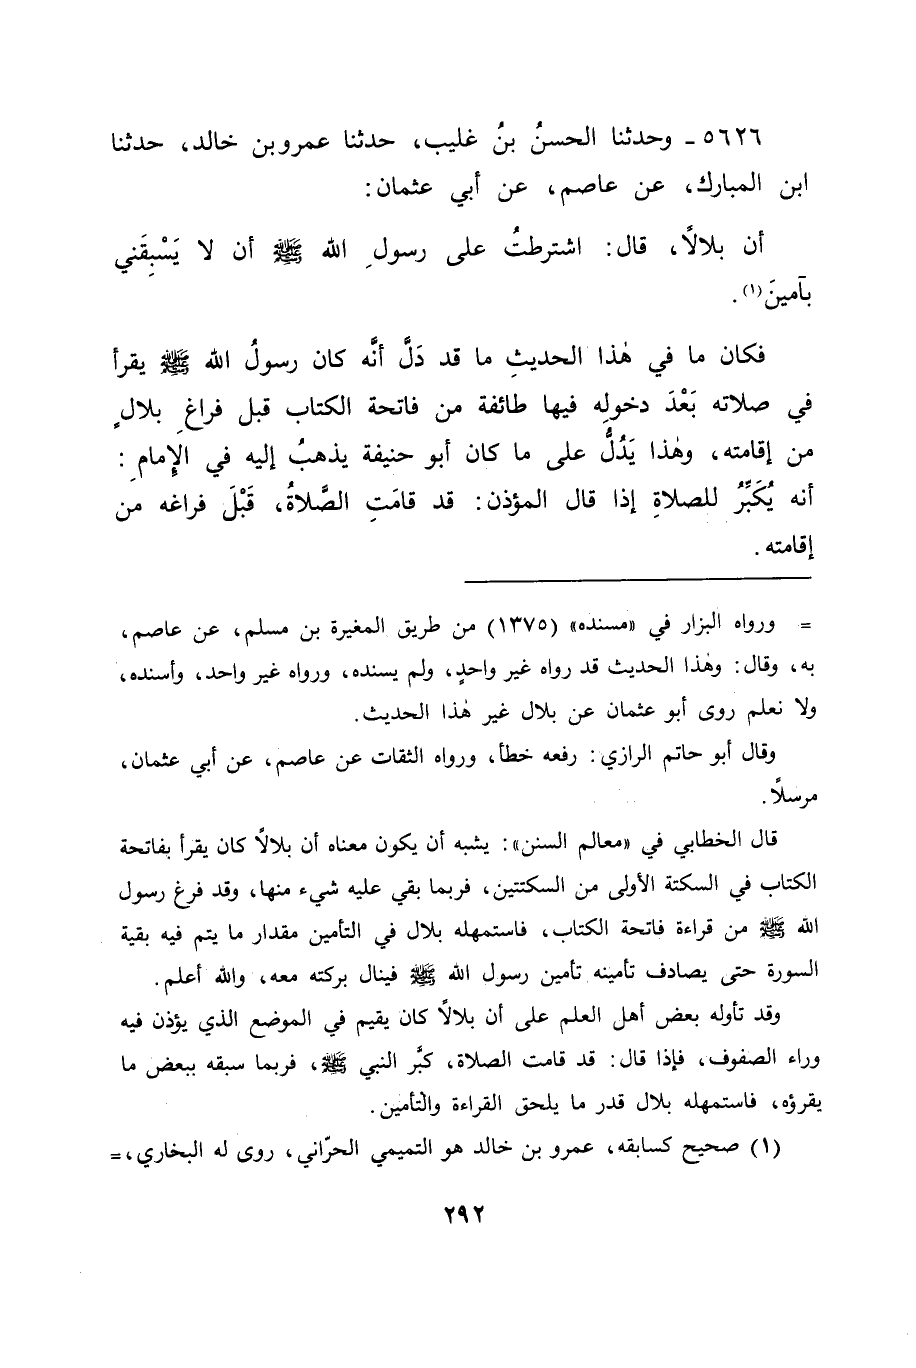 ٥٦٢٦ ـ وحدثنا الحسنُ بنُ غليب، حدثنا عمرو بن خالد، حدثنا
ابن المبارك، عن عاصم، عن أبي عثمان:
أن بلالاً، قال: اشترطتُ على رسولِ الله ﷺ أن لا يَسْبِقَني
بآمينَ(١).
فكان ما في هٰذا الحديثِ ما قد دَلَّ أنَّه كان رسولُ الله ﷺ يقرأ
في صلاته بَعْدَ دخولِه فيها طائفة من فاتحة الكتاب قبل فراغِ بلالٍ
من إقامته، وهٰذا يَدُلُّ على ما كان أبو حنيفة يذهبُ إليه في الإِمامِ:
أنه يُكَبِّرُ للصلاةِ إذا قال المؤذن: قد قامَتِ الصَّلاةُ، قَبْلَ فراغه من
إقامته.
= ورواه البزار في «مسنده» (١٣٧٥) من طريق المغيرة بن مسلم، عن عاصم،
به، وقال: وهٰذا الحديث قد رواه غير واحدٍ، ولم يسنده، ورواه غير واحد، وأسنده،
ولا نعلم روى أبو عثمان عن بلال غير هٰذا الحديث.
وقال أبو حاتم الرازي: رفعه خطأ، ورواه الثقات عن عاصم، عن أبي عثمان،
مرسلاً.
قال الخطابي في «معالم السنن»: يشبه أن يكون معناه أن بلالاً كان يقرأ بفاتحة
الكتاب في السكتة الأولى من السكتتين، فربما بقي عليه شيء منها، وقد فرغ رسول
الله ﷺ من قراءة فاتحة الكتاب، فاستمهله بلال في التأمين مقدار ما يتم فيه بقية
السورة حتى يصادف تأمينه تأمين رسول الله ﷺ فينال بركته معه، والله أعلم.
وقد تأوله بعض أهل العلم على أن بلالاً كان يقيم في الموضع الذي يؤذن فيه
وراء الصفوف، فإذا قال: قد قامت الصلاة، كبَّر النبي ﷺ، فربما سبقه ببعض ما
يقرؤه، فاستمهله بلال قدر ما يلحق القراءة والتأمين.
(١) صحيح كسابقه، عمرو بن خالد هو التميمي الحرّاني، روى له البخاري،=
٢٩٢